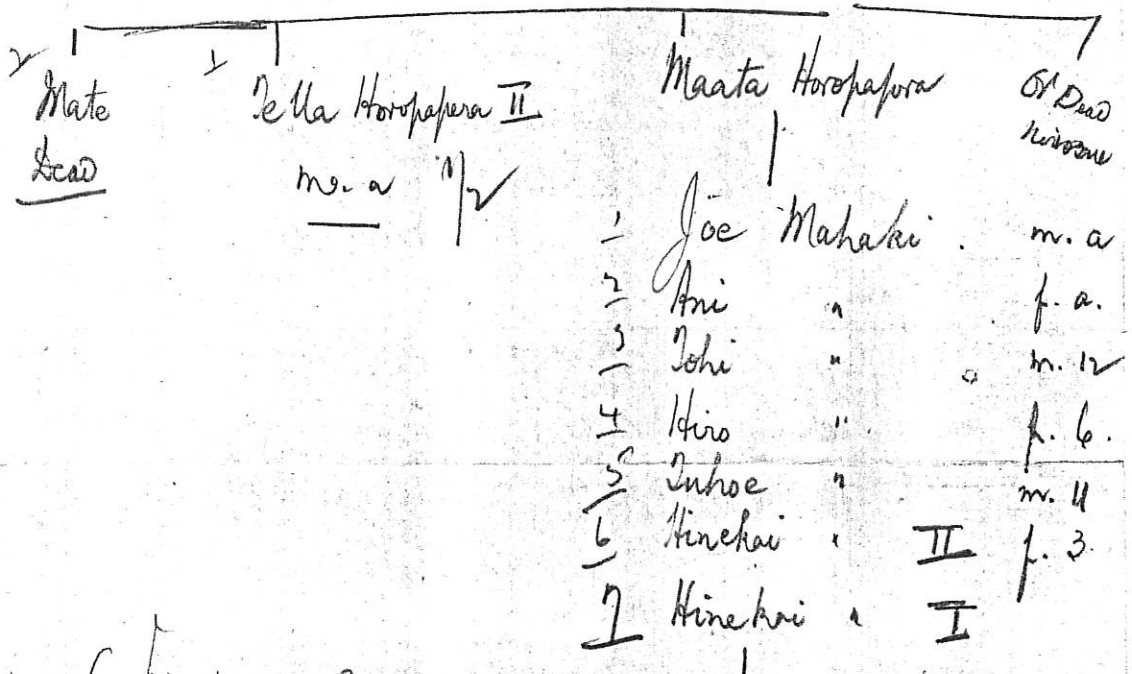 2 Mate 1 Te Ua Horopapera II Maata Horopapera
Dead Dead
m. a 1/2
1 Joe Mahaki . m. a
2 Ani " f. a.
3 Tohi " m. 12
4 Hiro " f. 6.
5 Tuhoe " m. 11
6 Hinekai " II f. 3.
7 Hinekai " I